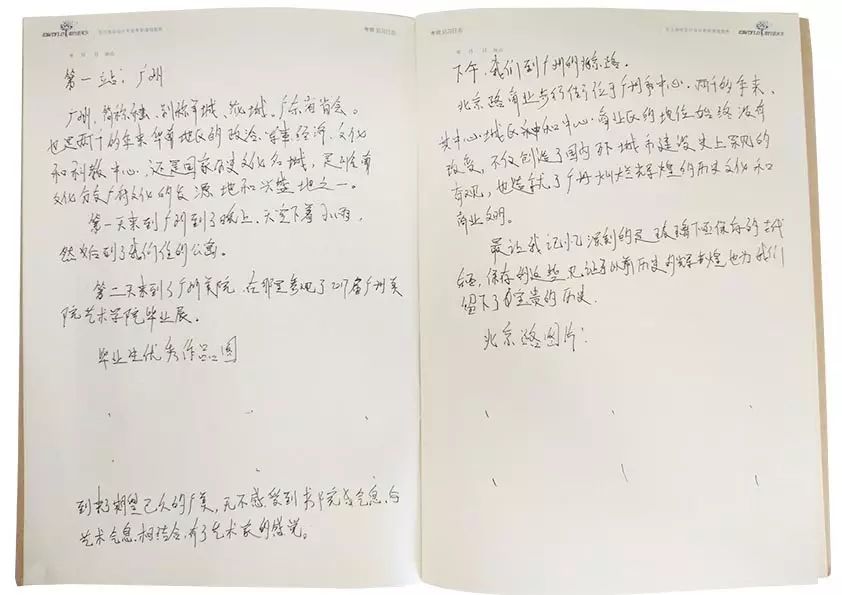 考察日记
年 月 日 地点
第一站：广州
广州，简称穗，别称羊城、花城。广东省省会。
也是两千多年来华南地区的政治、军事经济、文化
和科教中心，还是国家历史文化名城，是岭南
文化分支广府文化的发源地和兴盛地之一。
第一天来到广州到了晚上，天空下着小雨，
然后到了我们住的公寓。
第二天来到了广州美院，在那里参观了2017届广州美
院艺术学院毕业展。
毕业生优秀作品图
到来了期望已久的广美，无不感受到书香气息，与
艺术气息相结合，有了艺术家的感觉。
考察日记
年 月 日 地点
下午，我们到广州的北京路。
北京路商业步行街位于广州市中心，两千多年来，
其中心城区和中心商业区的地位始终没有
改变，不仅创造了国内外城市建设史上罕见的
奇观，也造就了广州灿烂辉煌的历史文化和
商业文明。
最让我记忆深刻的是玻璃下面保存的古代
保存的这些见证了以前历史的辉煌也为我们
留下了宝贵的历史。
北京路图片：